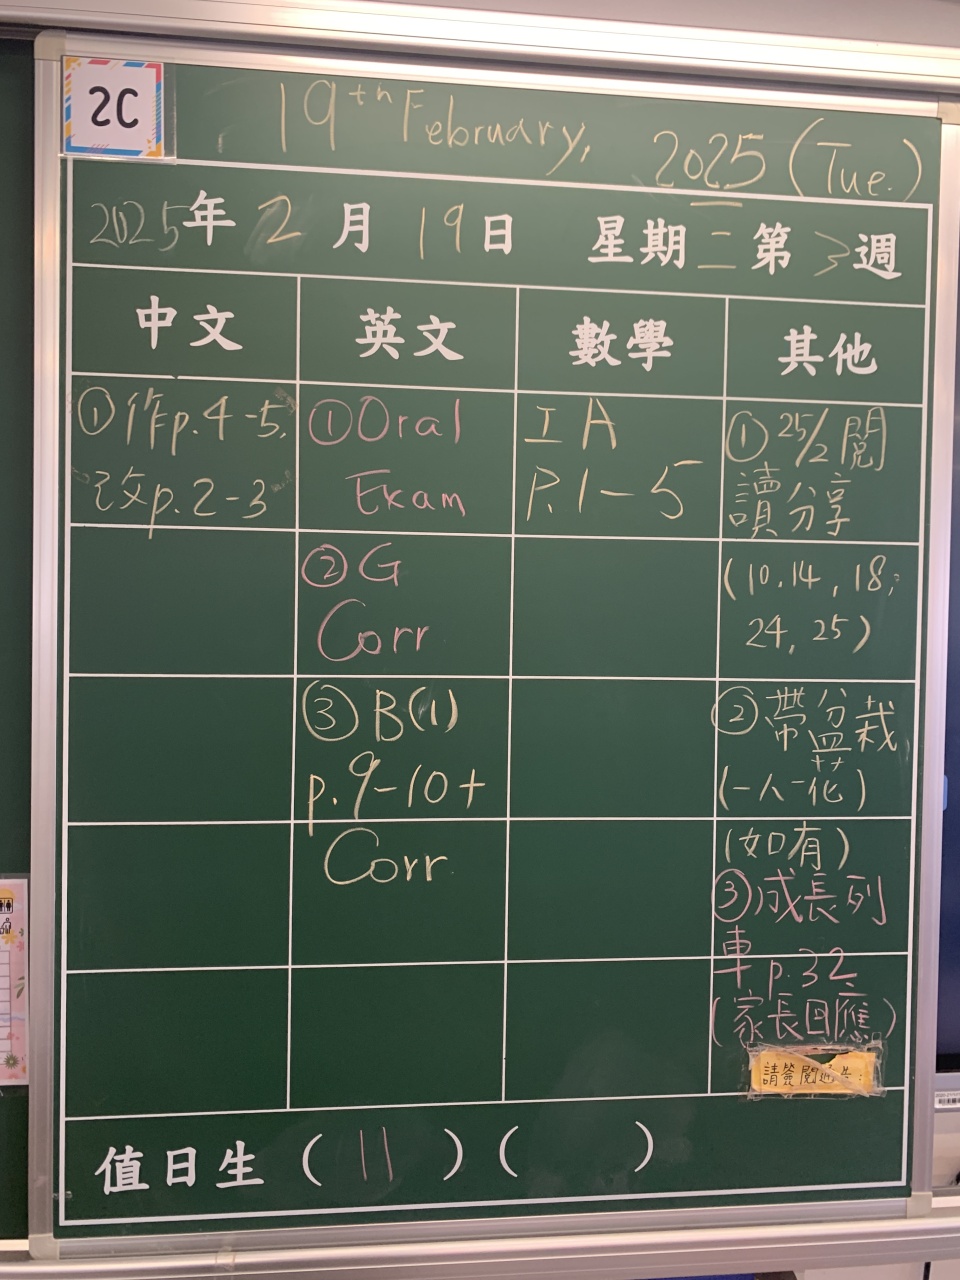 2C
19th February, 2025 (Tue.)
2025年2月19日 星期二第3週
中文 英文 數學 其他
①作p.4-5,
改p.2-3
①Oral
Exam
②G
Corr
③B(1)
p.9-10+
Corr.
IA
P.1-5
①25/2閱
讀分享
(10,14,18,
24,25)
②帶盆栽
(一人一花)
(如有)
③成長列
車p.32
(家長回應)
請簽閱通告:
值日生(11)( )